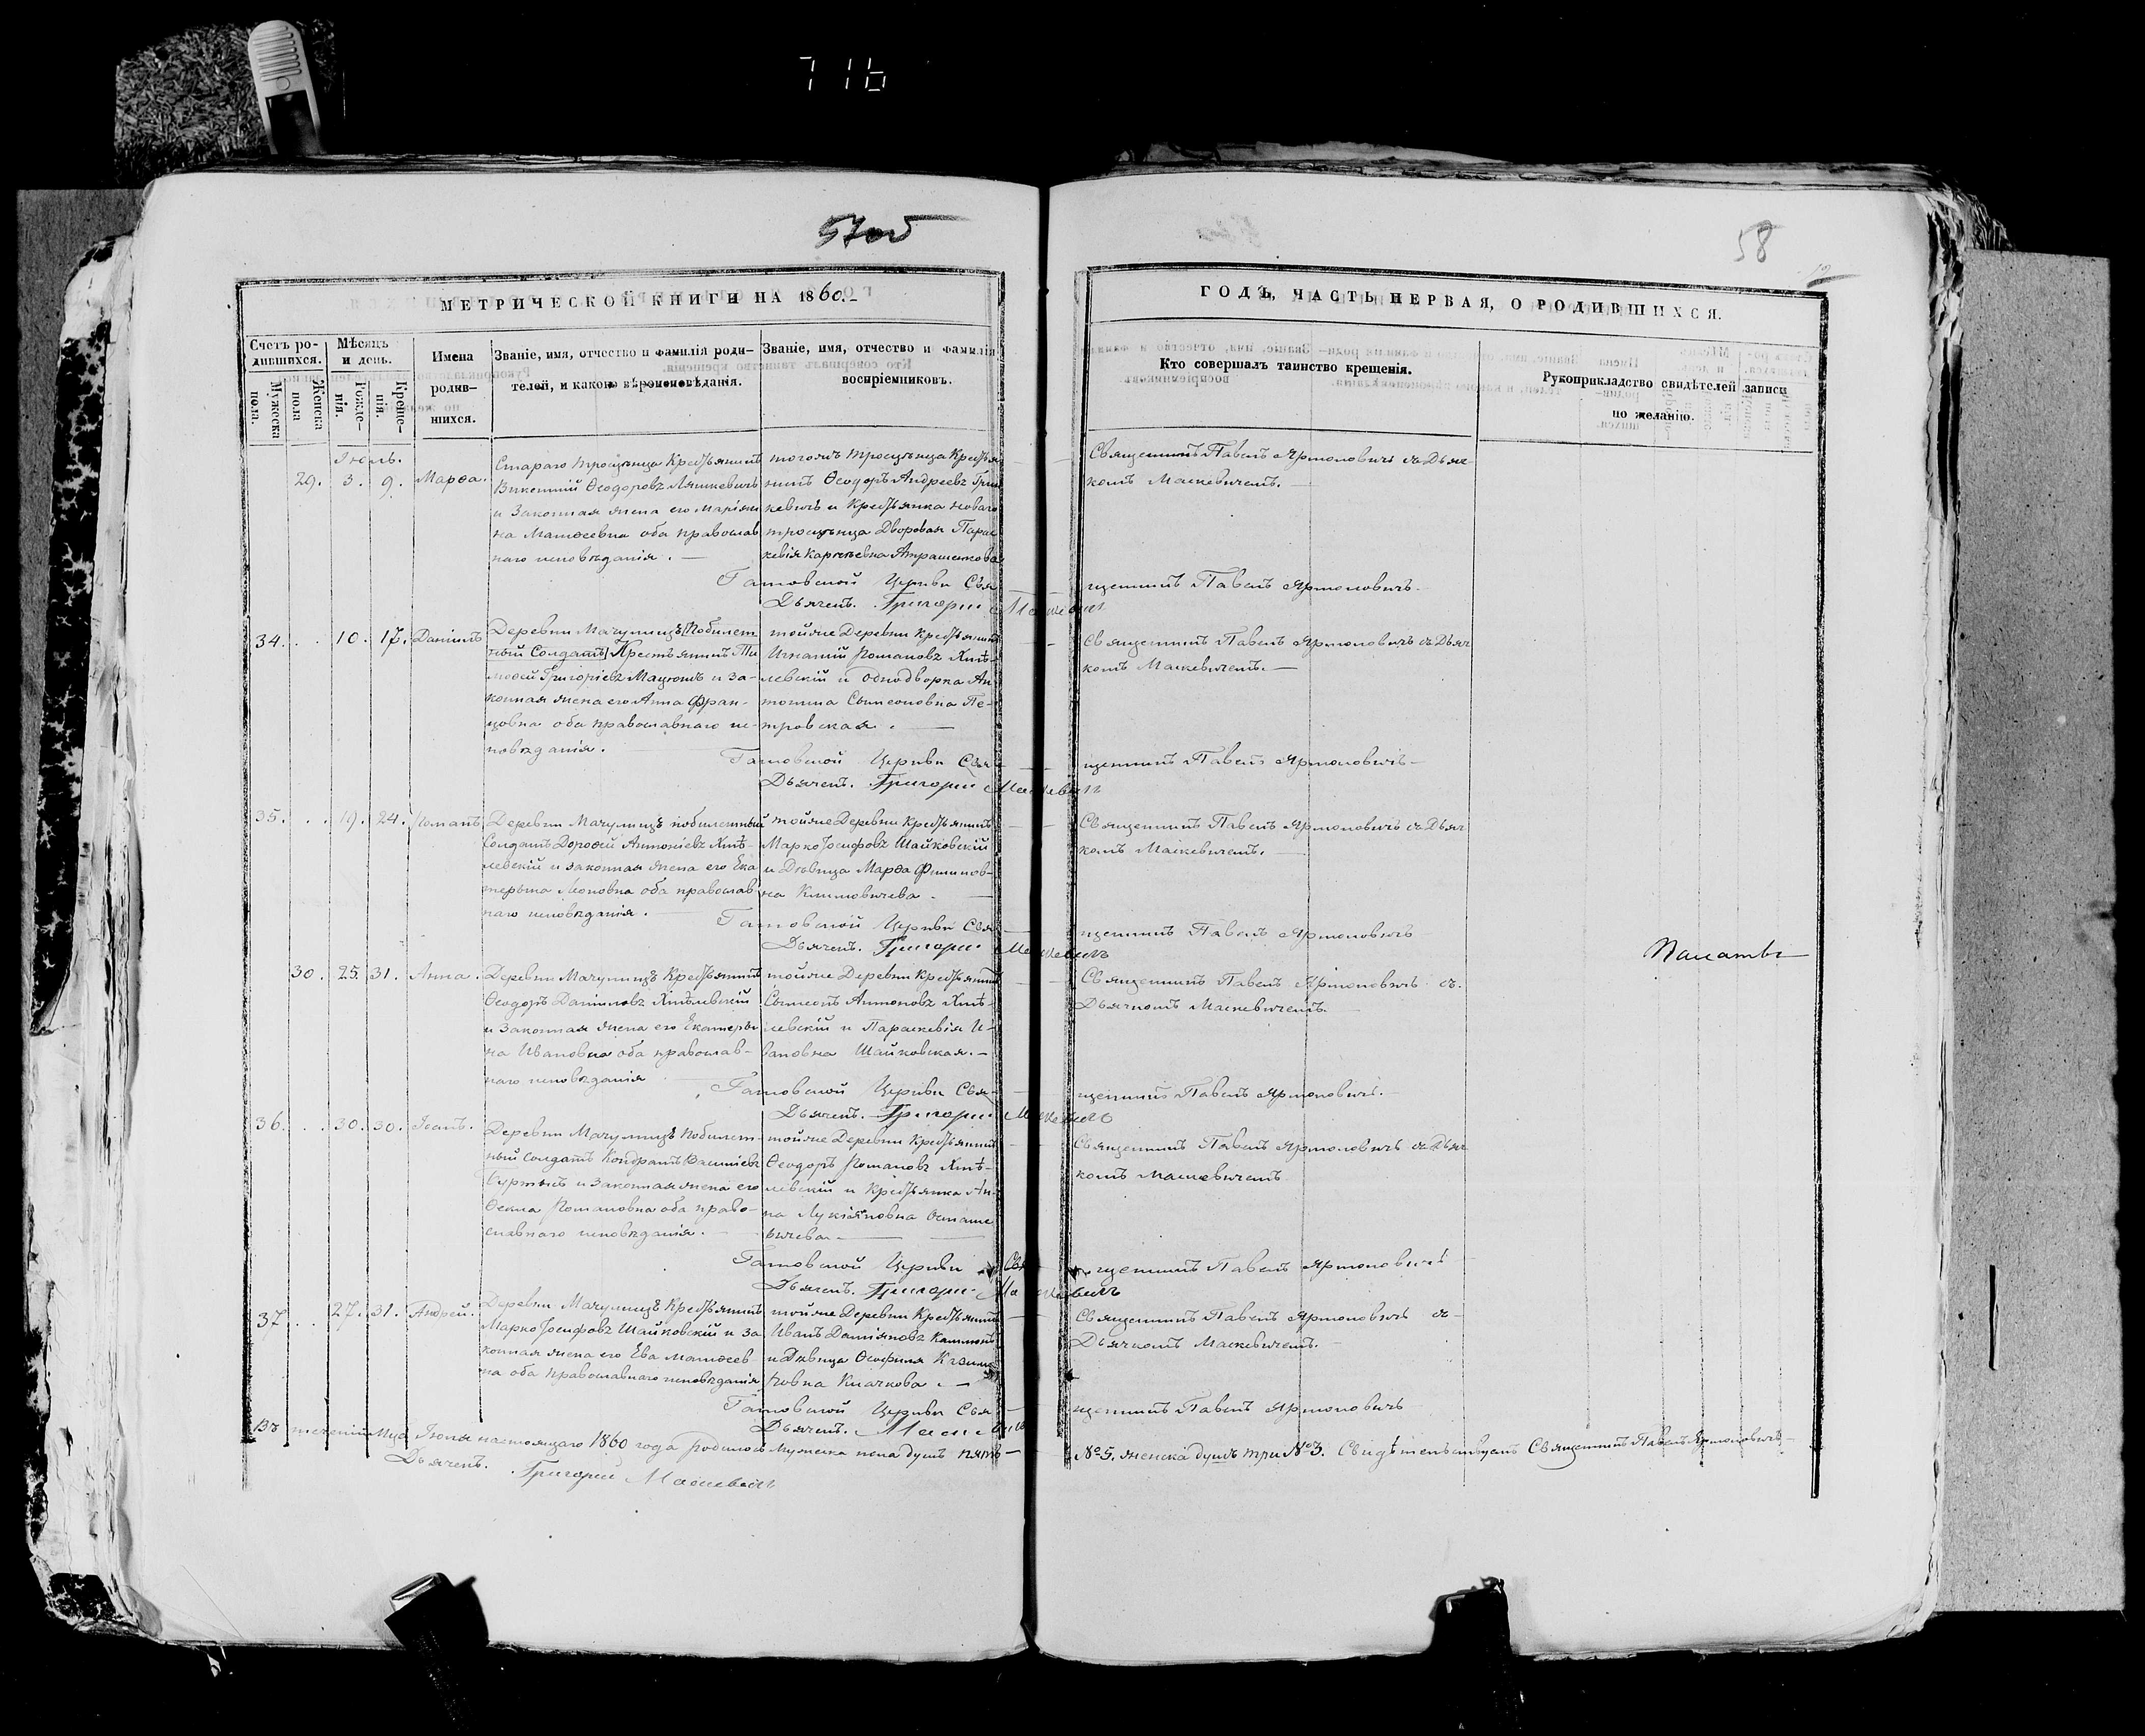 716
57об
58
МЕТРИЧЕСКОЙ КНИГИ НА 1860.
ГОДЪ, ЧАСТЬ ПЕРВАЯ, О РОДИВШИХСЯ.
Счетъ ро-
дившихся.
Мужеска
пола.
Женска
пола
Мѣсяцъ
и день.
Рожде-
нія.
Креще-
нія.
Имена
родив-
шихся.
Званіе, имя, отчество и фамилія роди-
телей, и какого вѣроисповѣданія.
Званіе, имя, отчество и фамилія
воспріемниковъ.
Кто совершалъ таинство крещенія.
Рукоприкладство свидѣтелей записи
по желанію.
Іюль.
29. 3. 9. Марѳа.
Стараго Тросцянца Крестьянинъ
Викентій Ѳеодоровъ Ляшкевичъ
и Законная жена его Маріан
на Матѳеевна оба православ
наго исповѣданія.
тогожъ Тросцянца Крестья
нинъ Ѳеодоръ Андреевъ
кевичъ и Крестьянка Новаго
тросцянца Дворовая Парас
кевія
Священникъ Павелъ Ярмоловичъ съ Дьяч
комъ Маскевичемъ.
Гатовской Церкви Свя щенникъ Павелъ Ярмоловичъ.
Дьячекъ. Григорій Маскевичъ
34. 10. 17. Даніилъ
Деревни Мачулищъ [Побилет
ный Солдатъ] Крестьянинъ Ти
моѳей Григоріевъ Мацюкъ и за-
конная жена его Анна Фран-
цовна оба православнаго ис-
повѣданія.
тойже Деревни Крестьянинъ
Игнатій Романовъ Хмѣ-
левскій и Однодворка Ан
тонина Сымеоновна Пе-
тровская.
Священникъ Павелъ Ярмоловичъ съ Дьяч
комъ Маскевичемъ.
Гатовской Церкви Свя щенникъ Павелъ Ярмоловичъ
Дьячекъ. Григорій Маскевичъ
35. 19. 24. Романъ
Деревни Мачулищъ побилетный
Солдатъ Дороѳей Антоніевъ Хмѣ-
левскій и законная жена его Ека
терына Леоновна оба православ
наго исповѣданія.
тойже Деревни Крестьянинъ
Марко Іосифовъ Шайковскій
и Дѣвица Марѳа Филипов-
на Климовичева.
Священникъ Павелъ Ярмоловичъ съ Дьяч
комъ Маскевичемъ.
Гатовской Церкви Свя щенникъ Павелъ Ярмоловичъ
Дьячекъ. Григорій Маскевичъ
30. 25. 31. Анна.
Деревни Мачулищъ Крестьянинъ
Ѳеодоръ Даніиловъ Хмѣлевскій
и Законная жена его Екатеры
на Ивановна оба православ-
наго исповѣданія
тойже Деревни Крестьянинъ
Сымеонъ Антоновъ Хмѣ-
левскій и Параскевія И-
вановна Шайковская.
Священникъ Павелъ Ярмоловичъ съ
Дьячкомъ Маскевичемъ.
Гатовской Церкви Свя щенникъ Павелъ Ярмоловичъ.
Дьячекъ. Григорій Маскевичъ
36. 30. 30. Іоанъ.
Деревни Мачулищъ Побилет-
ный Солдатъ Кондратъ Василіевъ
и Законная жена его
Ѳекла Романовна оба право-
славнаго исповѣданія.
тойже Деревни Крестьянинъ
Ѳеодоръ Романовъ Хмѣ-
левскій и Крестьянка Ан-
на Лукіяновна Осташе
вичева
Священникъ Павелъ Ярмоловичъ съ Дьяч
комъ Маскевичемъ
Гатовской Церкви Свя щенникъ Павелъ Ярмоловичъ
Дьячекъ. Григорій Маскевичъ
37 27. 31. Андрей.
Деревни Мачулищъ Крестьянинъ
Марко Іосифовъ Шайковскій и за
конная жена его Ева Матѳеев
на оба православнаго исповѣданія
тойже Деревни Крестьянинъ
Иванъ Даміяновъ
и Дѣвица Ѳеофиля Казими
ровна Клачкова.
Священникъ Павелъ Ярмоловичъ съ
Дьячкомъ Маскевичемъ.
Гатовской Церкви Свя щенникъ Павелъ Ярмоловичъ
Дьячекъ. Маскевичъ
Въ теченіи Мца Іюля настоящаго 1860 года родилось Мужеска пола душъ пять №5. женска душъ три №3. Свидѣтельствуетъ Священникъ Павелъ Ярмоловичъ
Дьячекъ. Григорій Маскевичъ